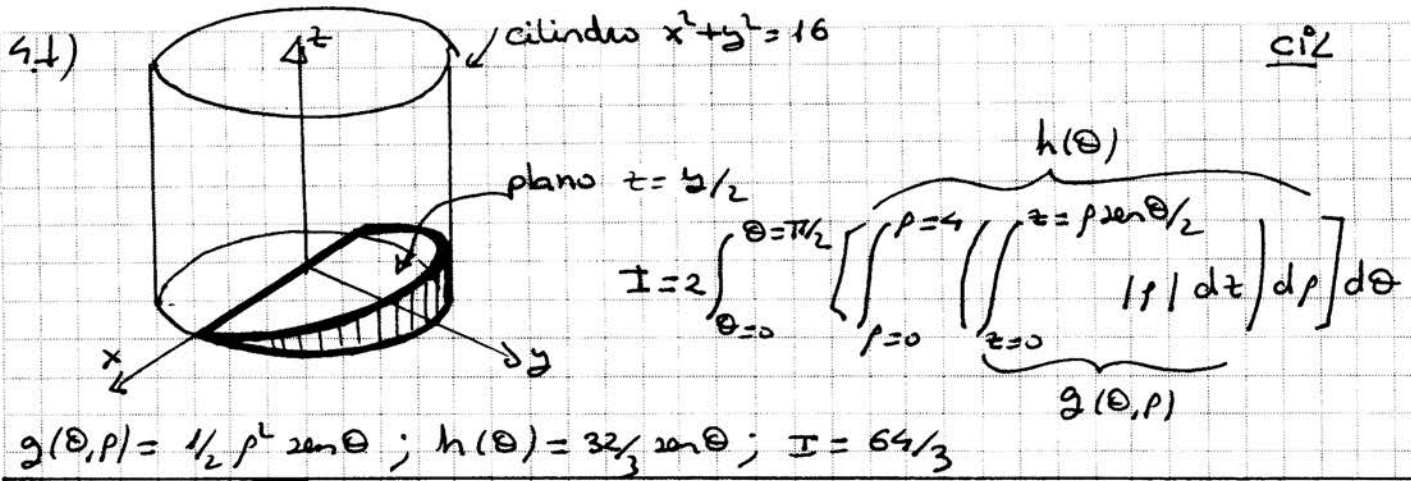 4.1)
z
cilindro x²+y²=16
cil
plano z=y/2
h(θ)
I=2∫_{θ=0}^{θ=π/2} [∫_{ρ=0}^{ρ=4} (∫_{z=0}^{z=ρ sen θ/2} |ρ| dz) dρ] dθ
x
y
g(θ,ρ)
g(θ,ρ)= 1/2 ρ² sen θ ; h(θ)= 32/3 sen θ ; I= 64/3